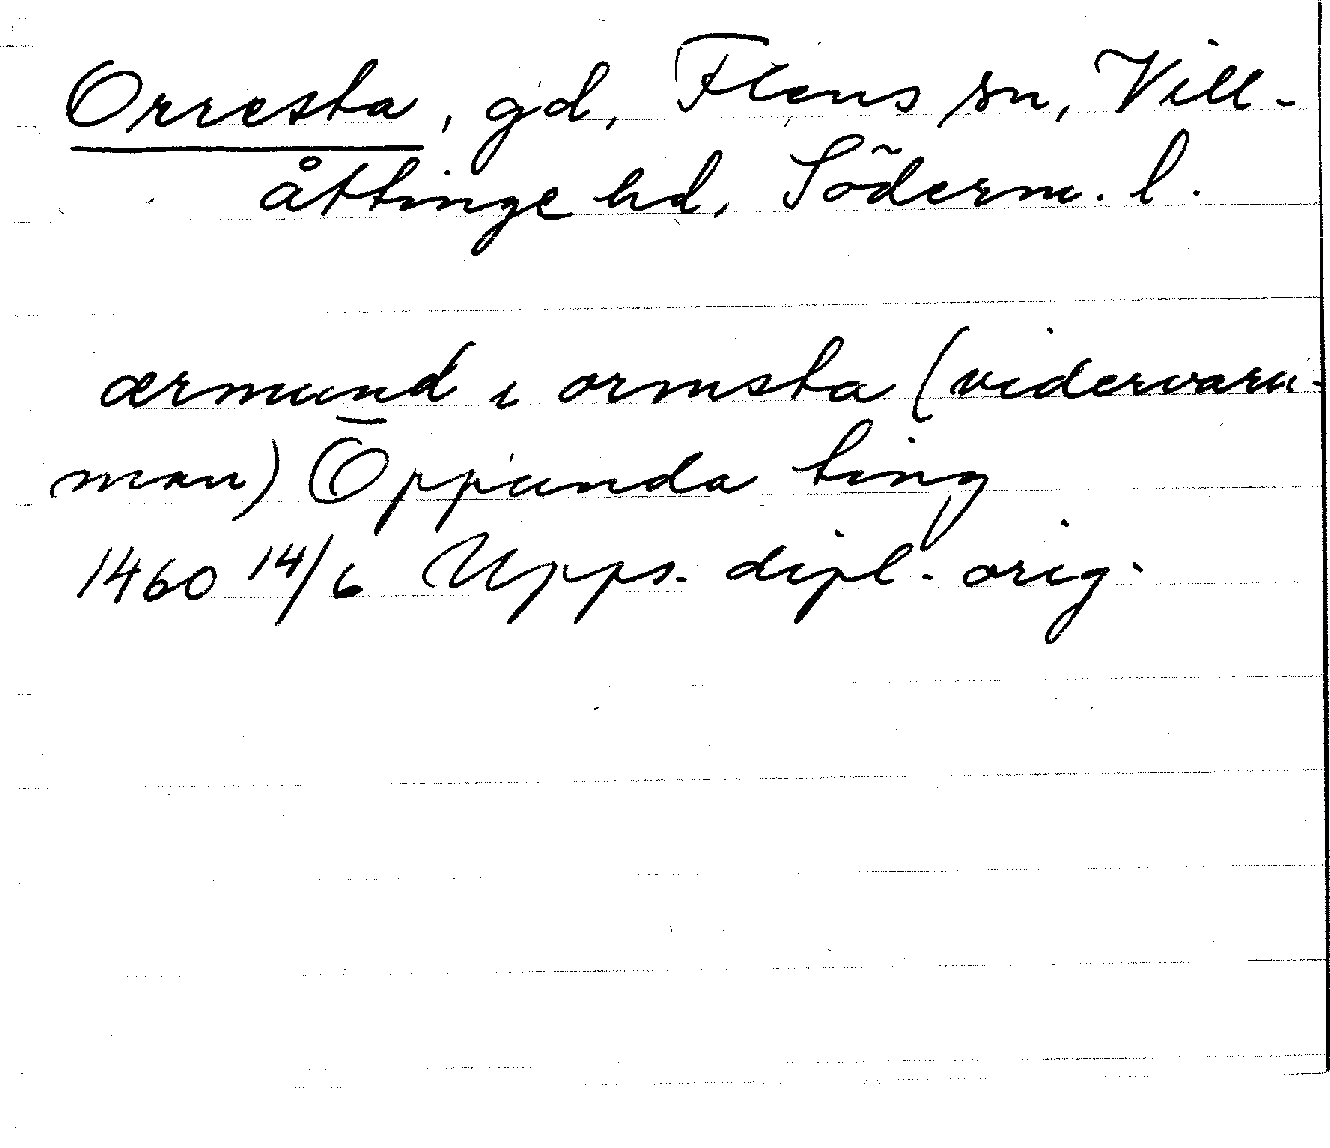 Orresta, gd, Flens sn, Vill-
åttinge hd, Söderm. l.
ærmund i ormsta (vidervaru-
man) Öppunda ting
1460 14/6 Upps. dipl. orig.